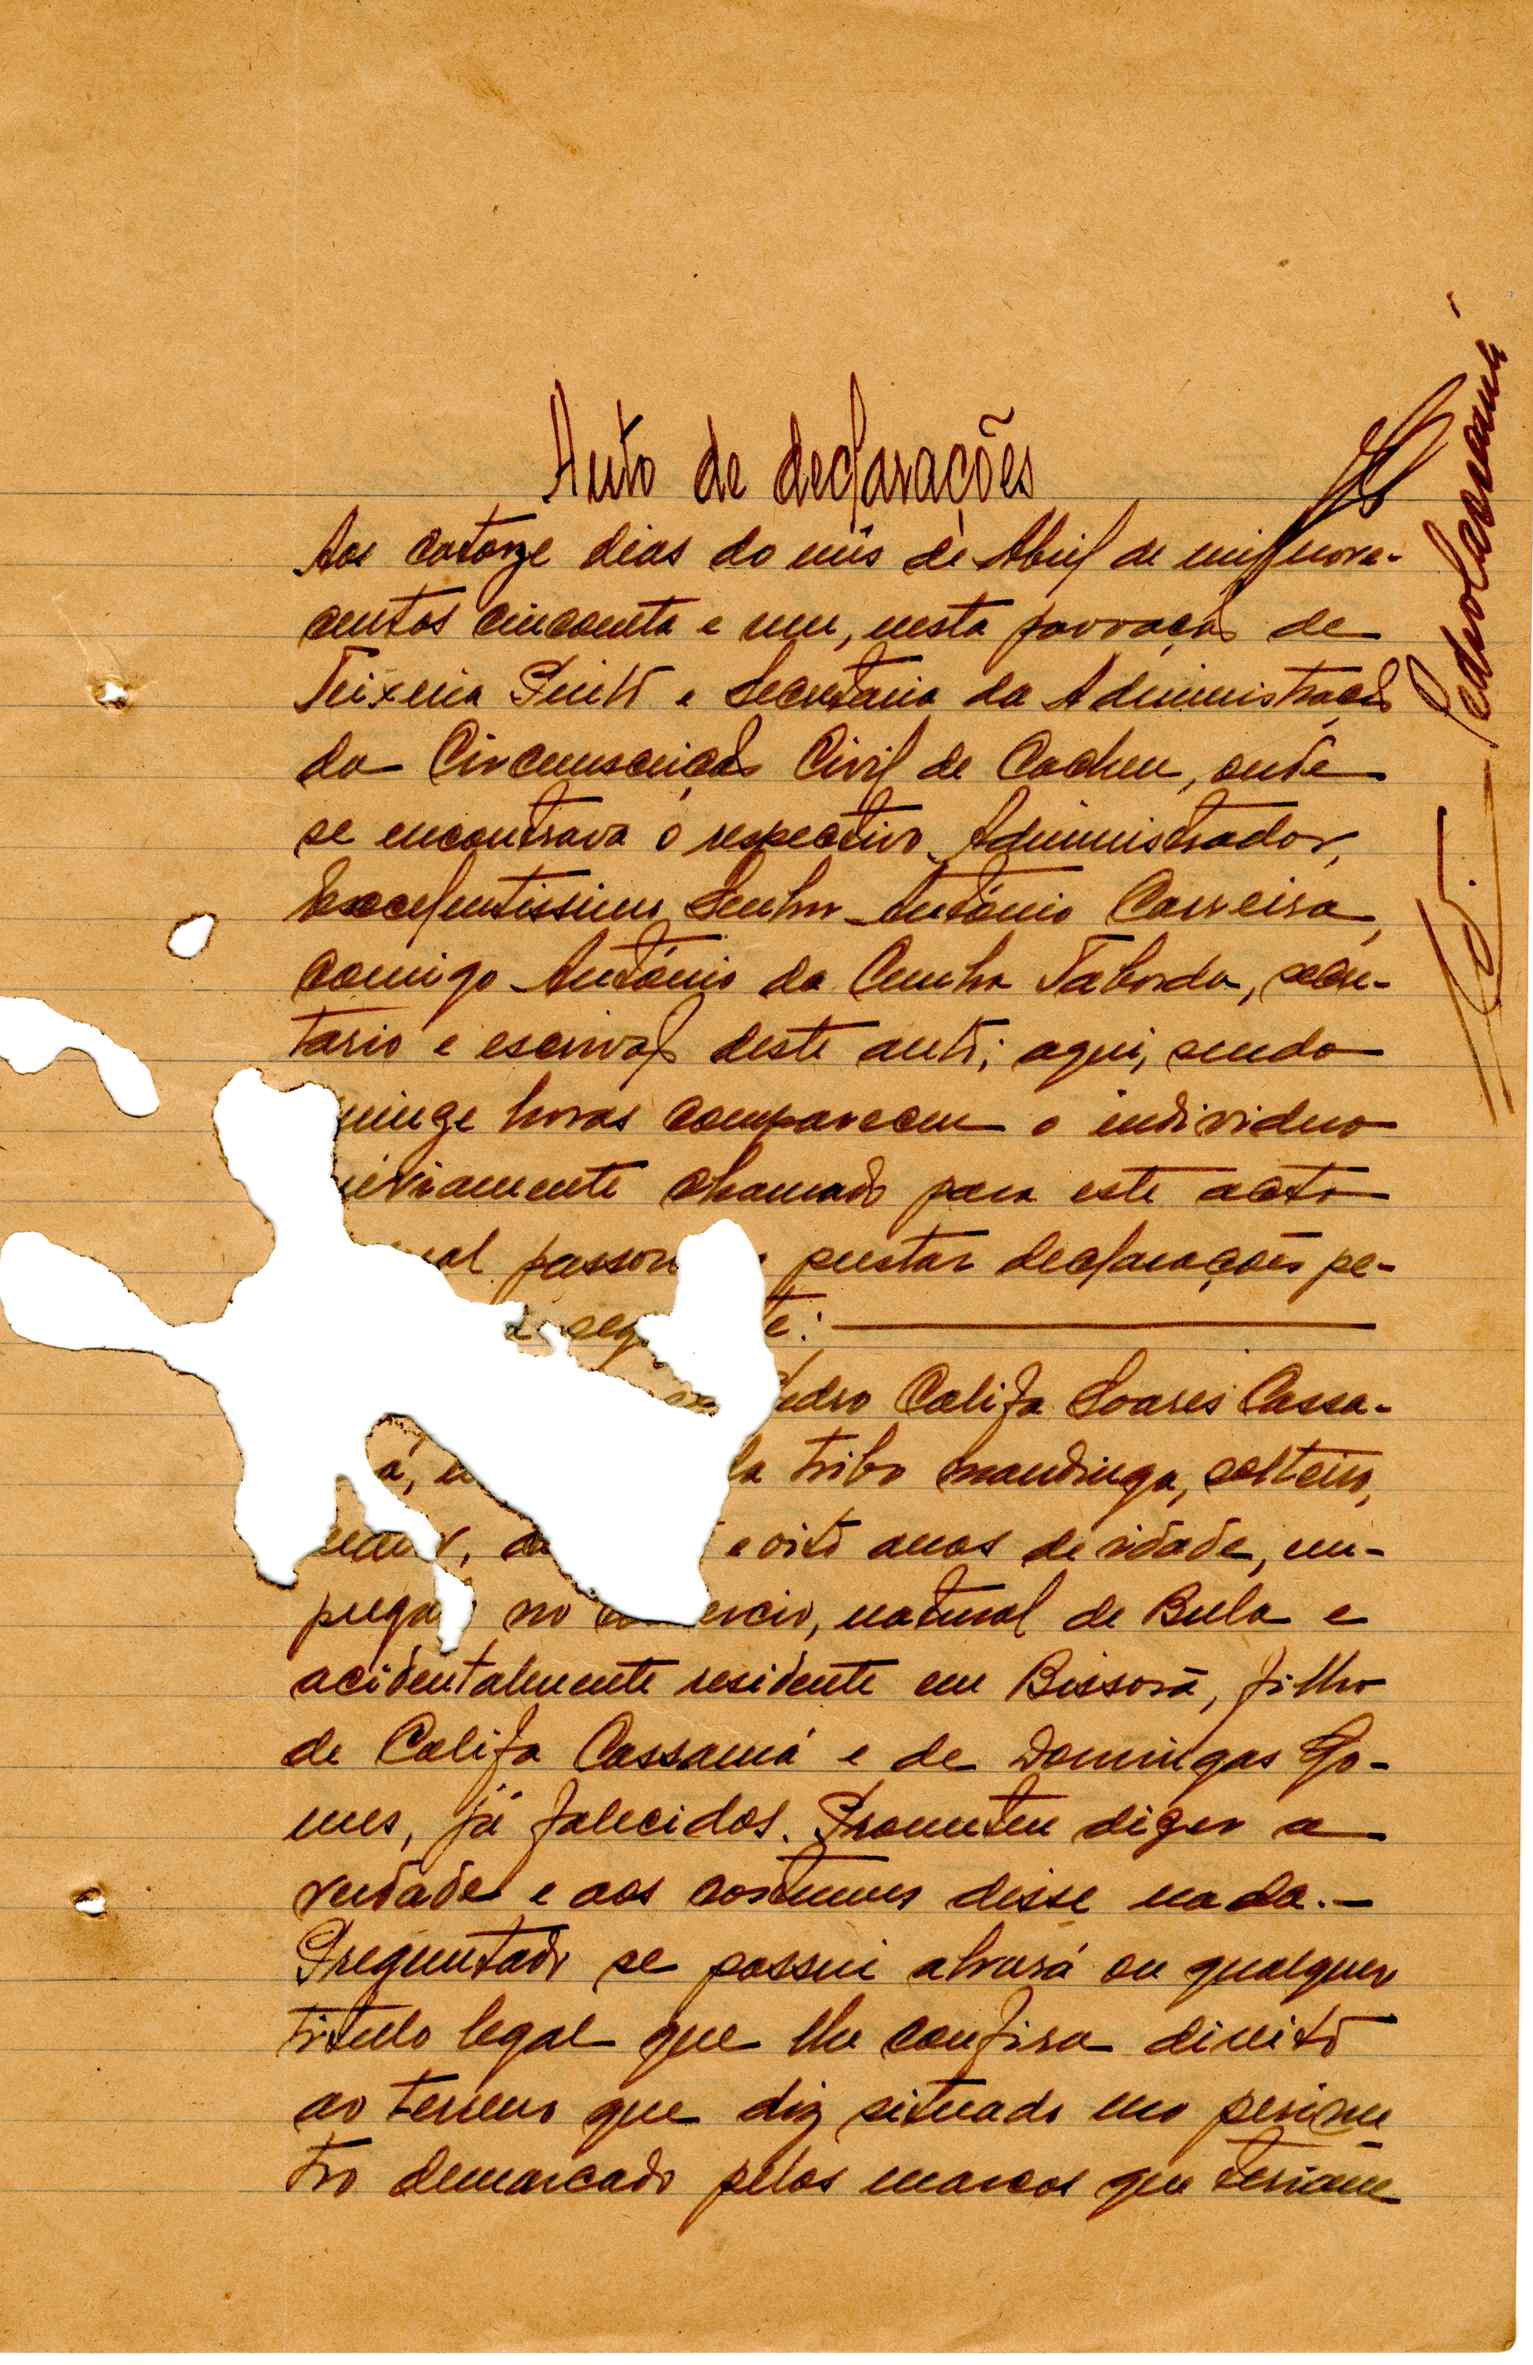 Auto de declarações
Aos catorze dias do mês de Abril de mil nove-
centos cincoenta e um, nesta povoação de
Teixeira Pinto e Secretaria da Administração
da Circunscrição Civil de Cacheu, onde
se encontrava o respectivo Administrador,
Excelentissimo Senhor António Carreira,
comigo António da Cunha Taborda, secre-
tario e escrivão deste auto; aqui, sendo
quinze horas compareceu o individuo
previamente chamado para este acto
qual passou prestar declarações pe-
e:
Pedro Califa Soares Cassa-
á, da tribo mandinga, solteiro,
e oito anos de idade, em-
pregado no comercio, natural de Bula e
acidentalmente residente em Bissorã, filho
de Califa Cassamá e de Domingas Go-
mes, já falecidos. Prometeu dizer a
verdade e aos costumes disse nada.-
Preguntado se possui alvará ou qualquer
titulo legal que lhe confira direito
ao terreno que diz situado no perime
tro demarcado pelos marcos que teriam
Pedro Cassamá